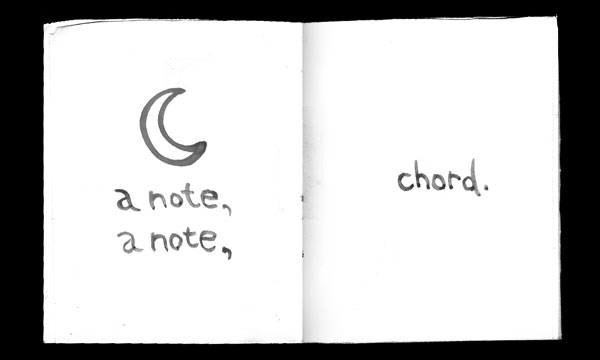 a note,
a note,
chord.